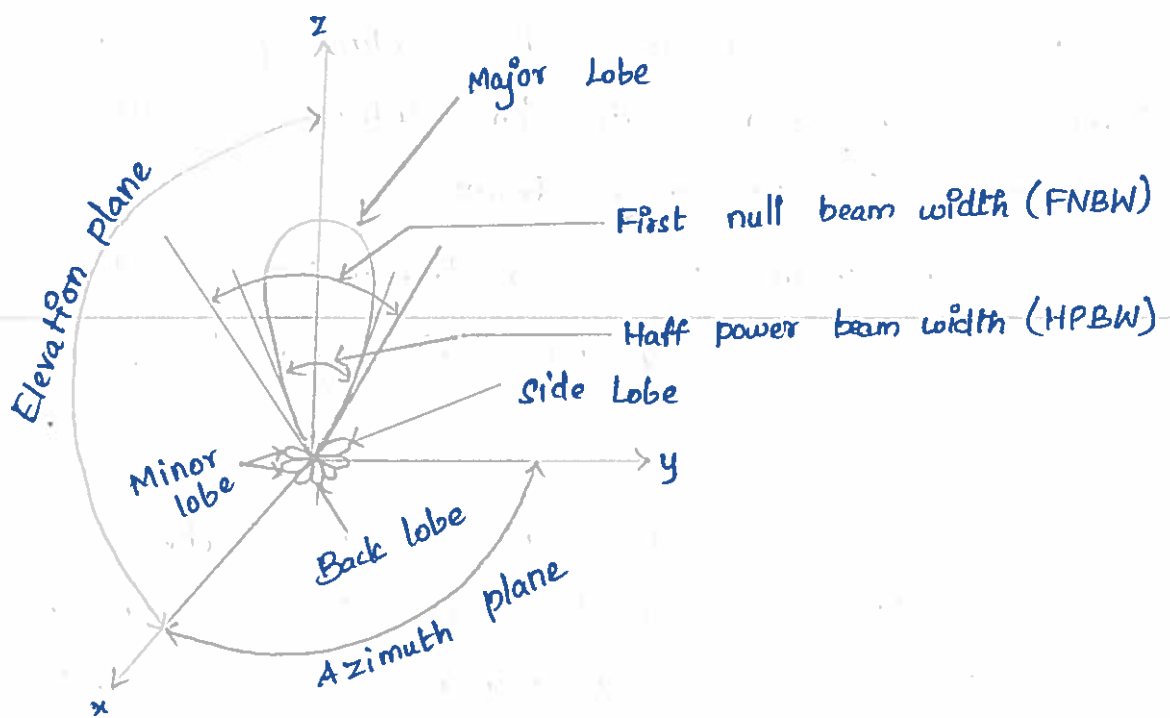 z
Major Lobe
Elevation plane
First null beam width (FNBW)
Haff power beam width (HPBW)
Side Lobe
Minor
lobe
y
Back lobe
Azimuth plane
x